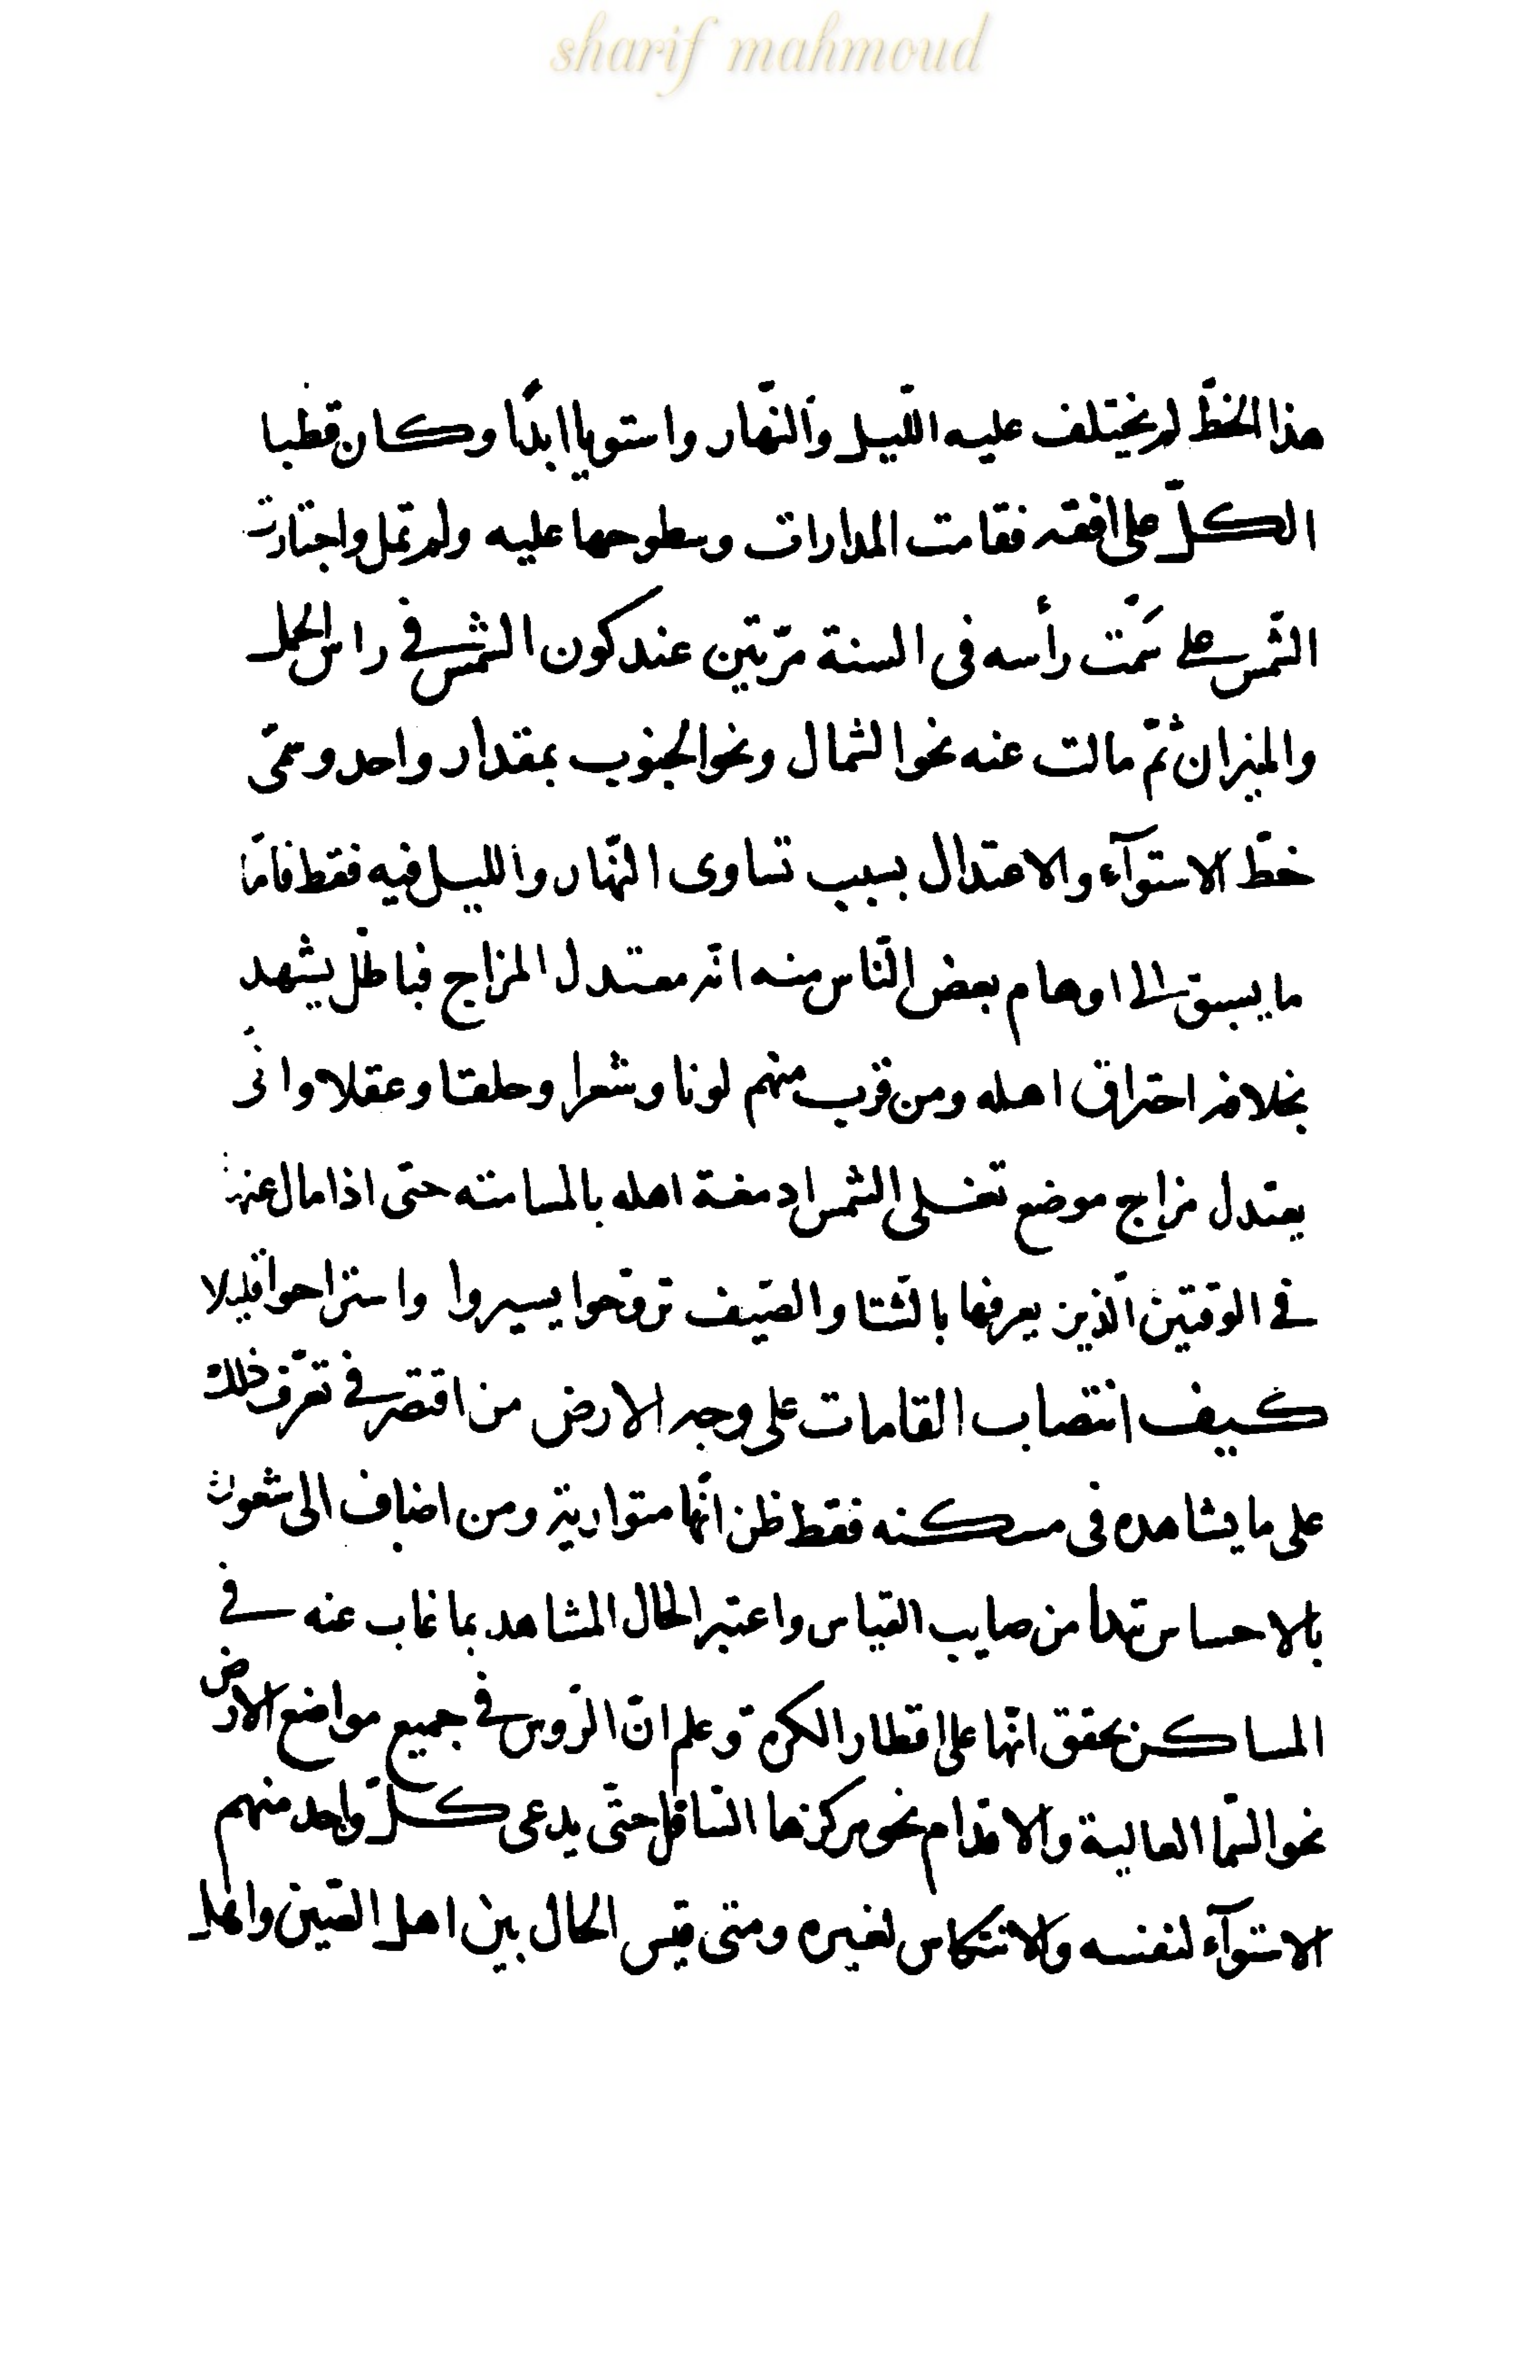 sharif mahmoud
هذا الخطّ لم يختلف عليه اللّيل والنّهار واستويا ابدًا وكان قطبا
الكلّ على افقه فقامت المدارات وسطوحها عليه ولم تمل واجتازت
الشّمس على سَمْت رأسه فى السنة مرّتين عند كون الشمس فى راس الحمل
والميزان ثمّ مالت عنه نحو الشمال ونحو الجنوب بمقدار واحد وسمّى
خطّ الاستوآء والاعتدال بسبب تساوى النّهار والليل فيه فقط فامّا
ما يسبق الى اوهام بعض النّاس منه انّه معتدل المزاج فباطل يشهد
بخلافه احتراق اهله ومن قرب منهم لونا وشعرا وخلقا وعقلا وانّى
يعتدل مزاج موضع تغلى الشمس ادمغة اهله بالمسامته حتى اذا مال عنهم
فى الوقتين الّذين يعرفها بالشتا والصّيف تروّحوا يسيروا واستراحوا قليلا
كيف انتصاب القامات على وجه الارض من اقتصر فى تعرّف ذلك
على ما يشاهده فى مسكنه فقط ظن انّها متوازية ومن اضاف الى
بالاحساس من صايب القياس واعتبر الحال المشاهد بما غاب عنه فى
المساكن تحقق انّها على اقطار الكرة وعلم انّ الرّوس فى جميع مواضع الارض
نحو السّما العالية والاقدام نحو مركزها السّافل حتّى يدعى كلّ واحد منهم
الاستوآء لنفسه والانتكاس لغيره ومتى قيس الحال بين اهل الصّين واهل